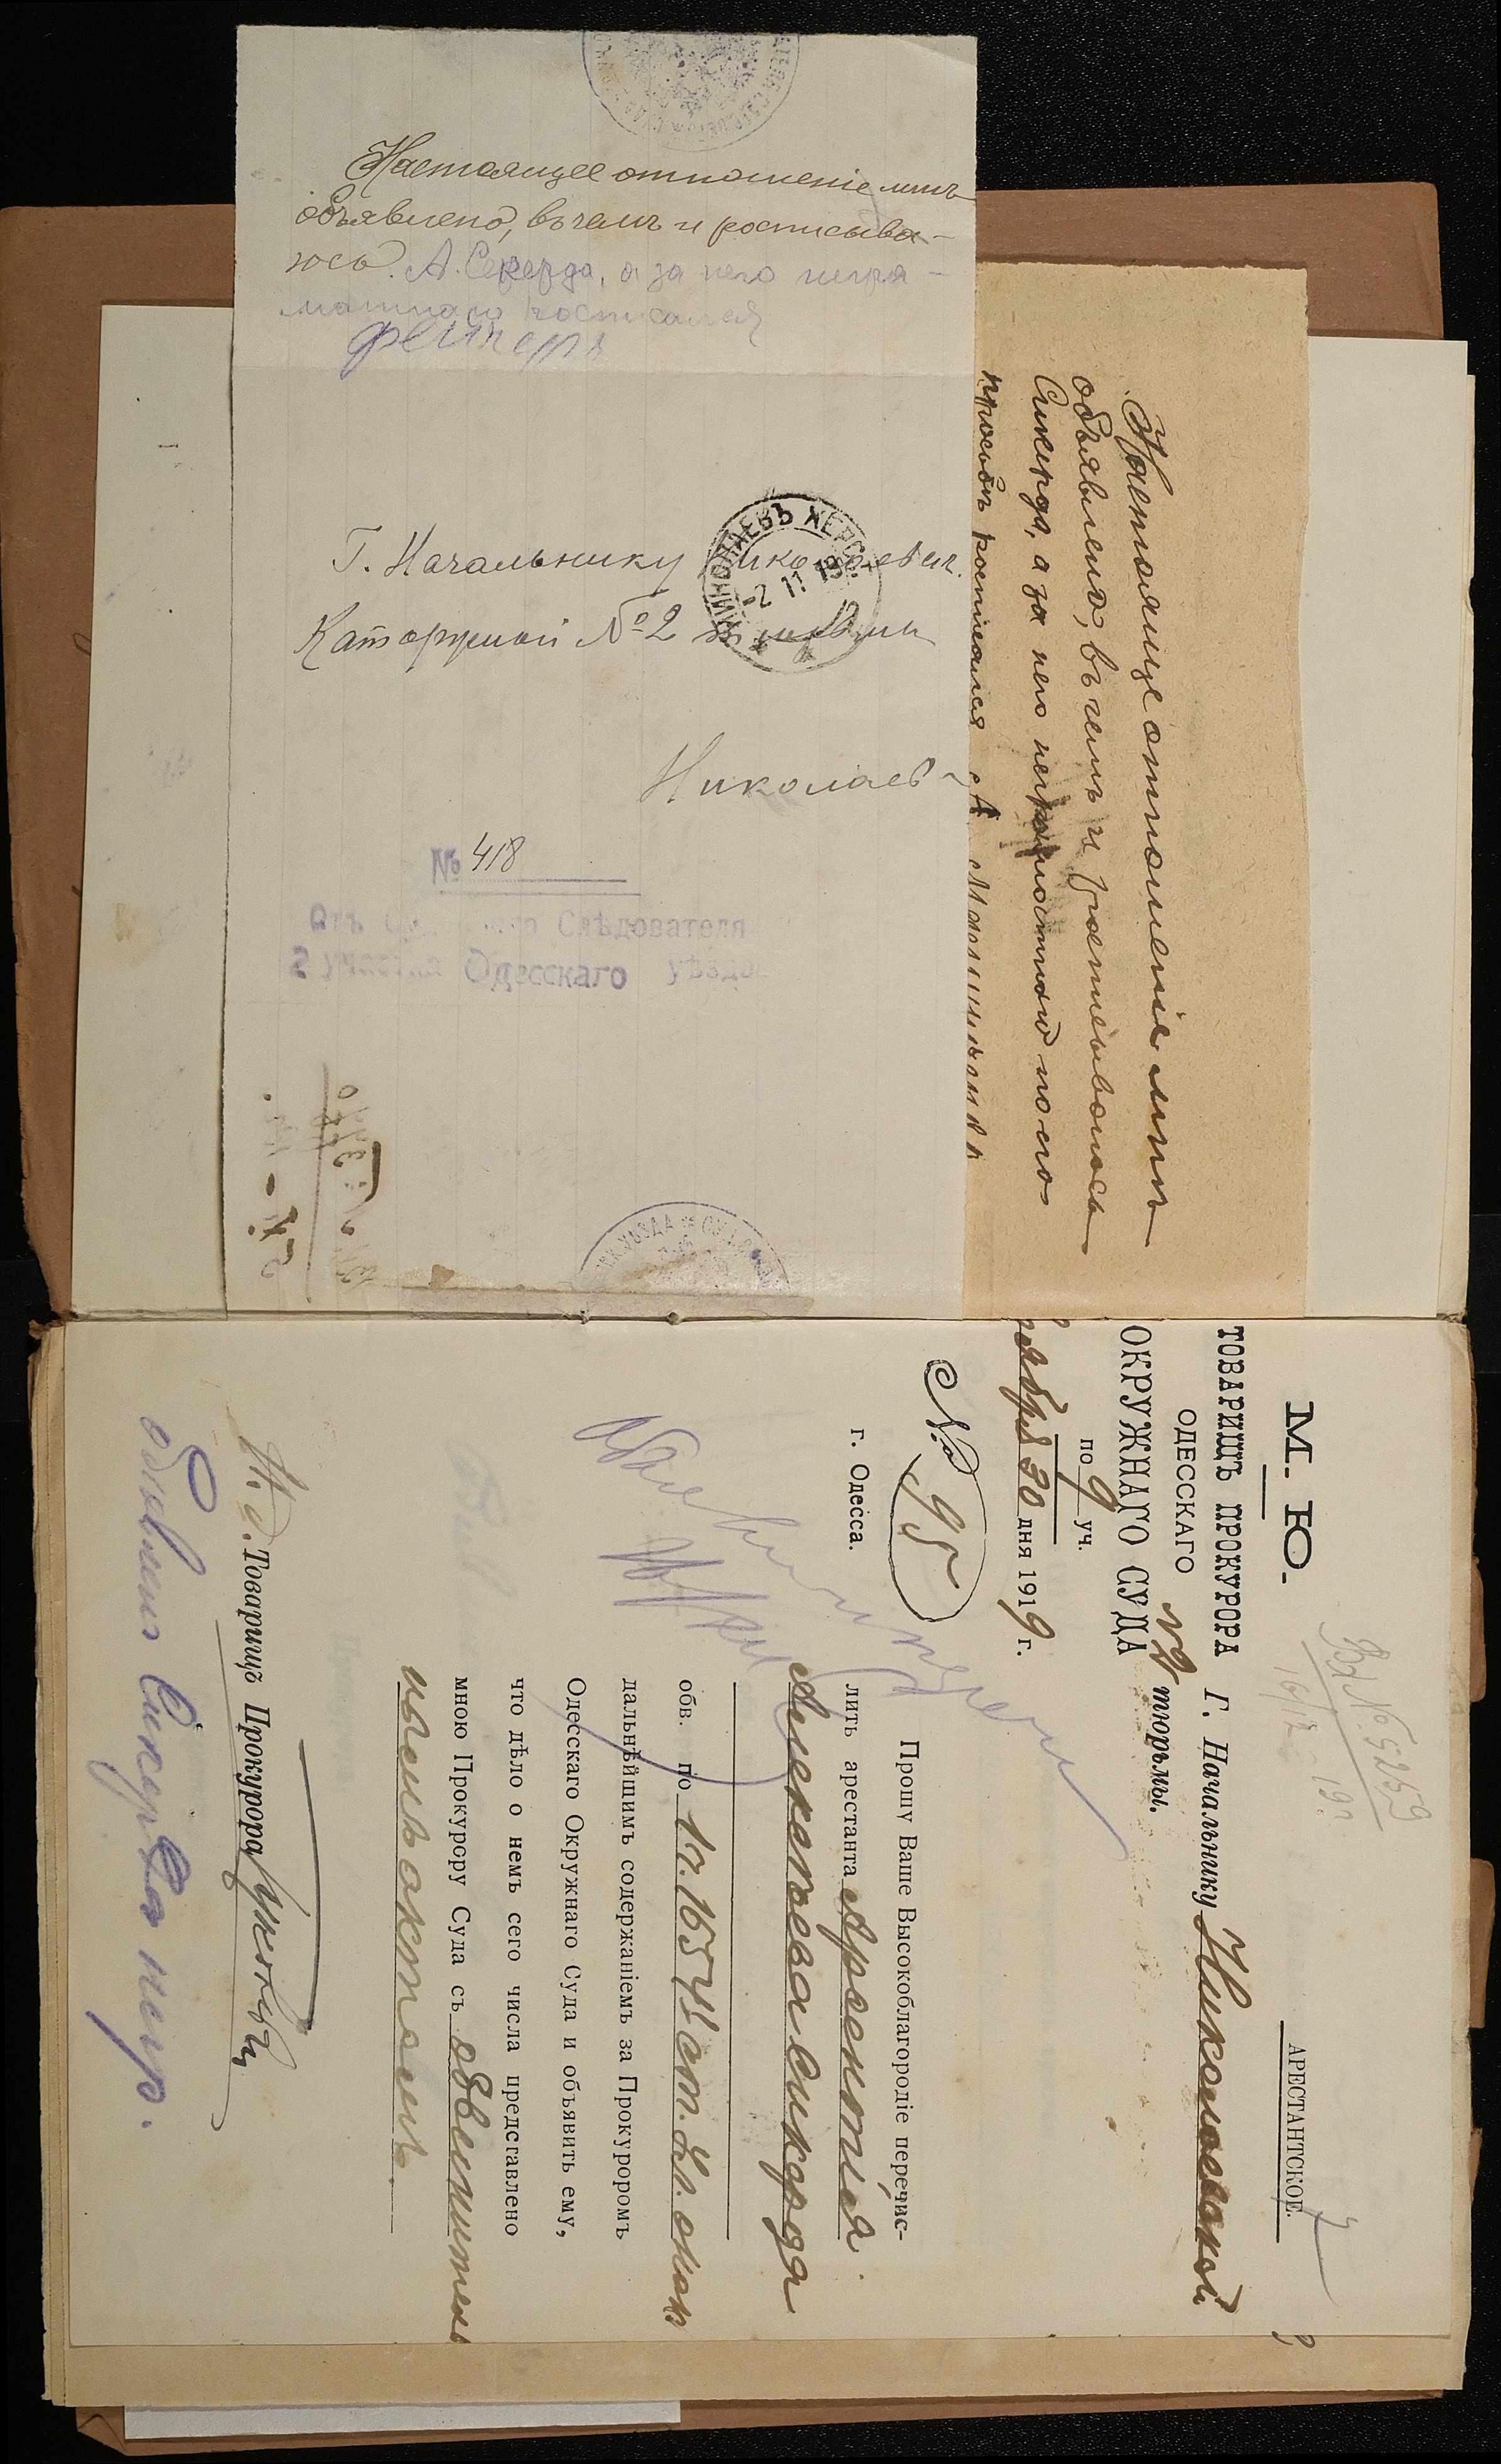 Настоящее отношеніе мнѣ
объявлено, въ чемъ и росписыва-
юсь. А. Секерда, а за него негра-
мотнаго росписался
Г. Начальнику Николаевск.
Каторжной № 2 тюрьмы
НИКОЛАЕВЪ ХЕРС.
-2 11 19
Николаевъ
№ 418
Отъ Слѣдователя
2 участка Одесскаго уѣзда
Настояще отношеніе мнѣ
объявлено, въ чемъ и
Сикерда, а за него неграмотнаго по его
просьбѣ росписался А.
М. Ю.
ТОВАРИЩЪ ПРОКУРОРА
ОДЕССКАГО
ОКРУЖНАГО СУДА
по 9 уч.
ября 30 дня 1919 г.
№ 95
г. Одесса.
Вх № 5259
16/12 19
АРЕСТАНТСКОЕ.
Г. Начальнику Николаевской
№2 тюрьмы.
Прошу Ваше Высокоблагородіе перечис-
лить арестанта Арсентія
Алексѣева Сикерда
обв. по 1 ч. 1654 ст. Ул. о нак
дальнѣйшимъ содержаніемъ за Прокуроромъ
Одесскаго Окружнаго Суда и объявить ему,
что дѣло о немъ сего числа представлено
мною Прокурору Суда съ обвинитель
нымъ актомъ.
И. д. Товарищъ Прокурора
Сикерда негр.